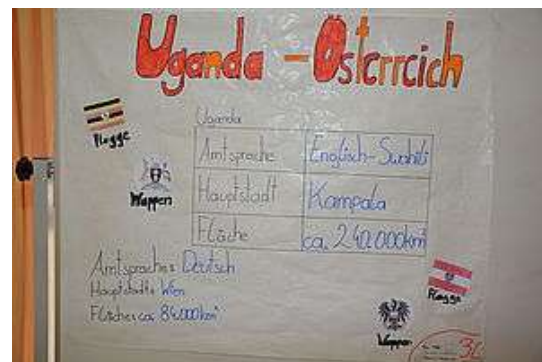 Uganda - Österreich
Uganda
Flagge
Amtsprache Englisch-Swahili
Wappen
Hauptstadt Kampala
Fläche ca. 240.000km²
Amtsprache: Deutsch
Hauptstadt: Wien
Fläche: ca. 84.000km²
Flagge
Wappen